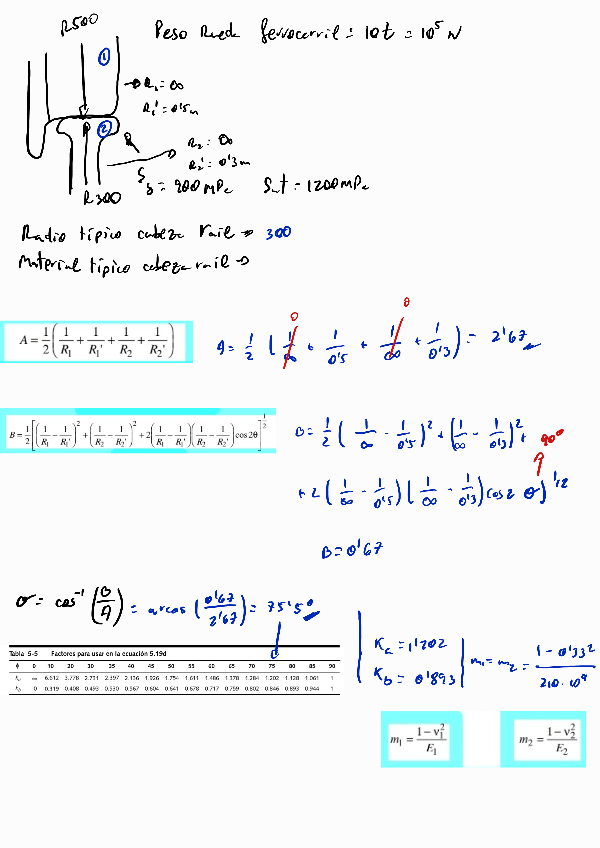 R500 Peso Rueda ferrocarril = 10t = 10⁵ N
①
→ R₁ = ∞
R₁' = 0'5m
②
P
R₂ = ∞
R₂' = 0'3m
R300
Sy = 900 MPa Sut = 1200 MPa
Radio típico cabeza rail → 300
Material típico cabeza rail →
A = 1/2 (1/R₁ + 1/R₁' + 1/R₂ + 1/R₂')
0 0
A = 1/2 (1/∞ + 1/0'5 + 1/∞ + 1/0'3) = 2'67
B = 1/2 [(1/R₁ − 1/R₁')² + (1/R₂ − 1/R₂')² + 2(1/R₁ − 1/R₁')(1/R₂ − 1/R₂') cos 2θ]^1/2
B = 1/2 (1/∞ − 1/0'5)² + (1/∞ − 1/0'3)² +
90°
+ 2 (1/∞ − 1/0'5) (1/∞ − 1/0'3) cos 2 θ)^1/2
B = 0'67
σ = cos⁻¹ (B/A) = arcos (0'67/2'67) = 75'5°
Tabla 5-5 Factores para usar en la ecuación 5.19d
ϕ 0 10 20 30 35 40 45 50 55 60 65 70 75 80 85 90
kₐ ∞ 6.612 3.778 2.731 2.397 2.136 1.926 1.754 1.611 1.486 1.378 1.284 1.202 1.128 1.061 1
k_b 0 0.319 0.408 0.493 0.530 0.567 0.604 0.641 0.678 0.717 0.759 0.802 0.846 0.893 0.944 1
Ka = 1'202
Kb = 0'893
m₁ = m₂ = (1 − 0'33²)/(210·10⁹)
m₁ = (1 − ν₁²)/E₁ m₂ = (1 − ν₂²)/E₂